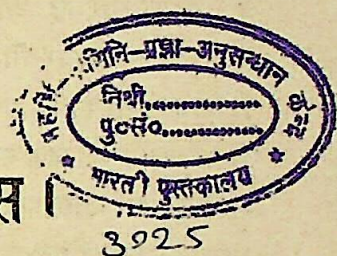 महर्षि पाणिनि-प्रज्ञा-अनुसन्धान केन्द्र
तिथी..............
पु०सं०..............
* भारती पुस्तकालय *
स ।
3925